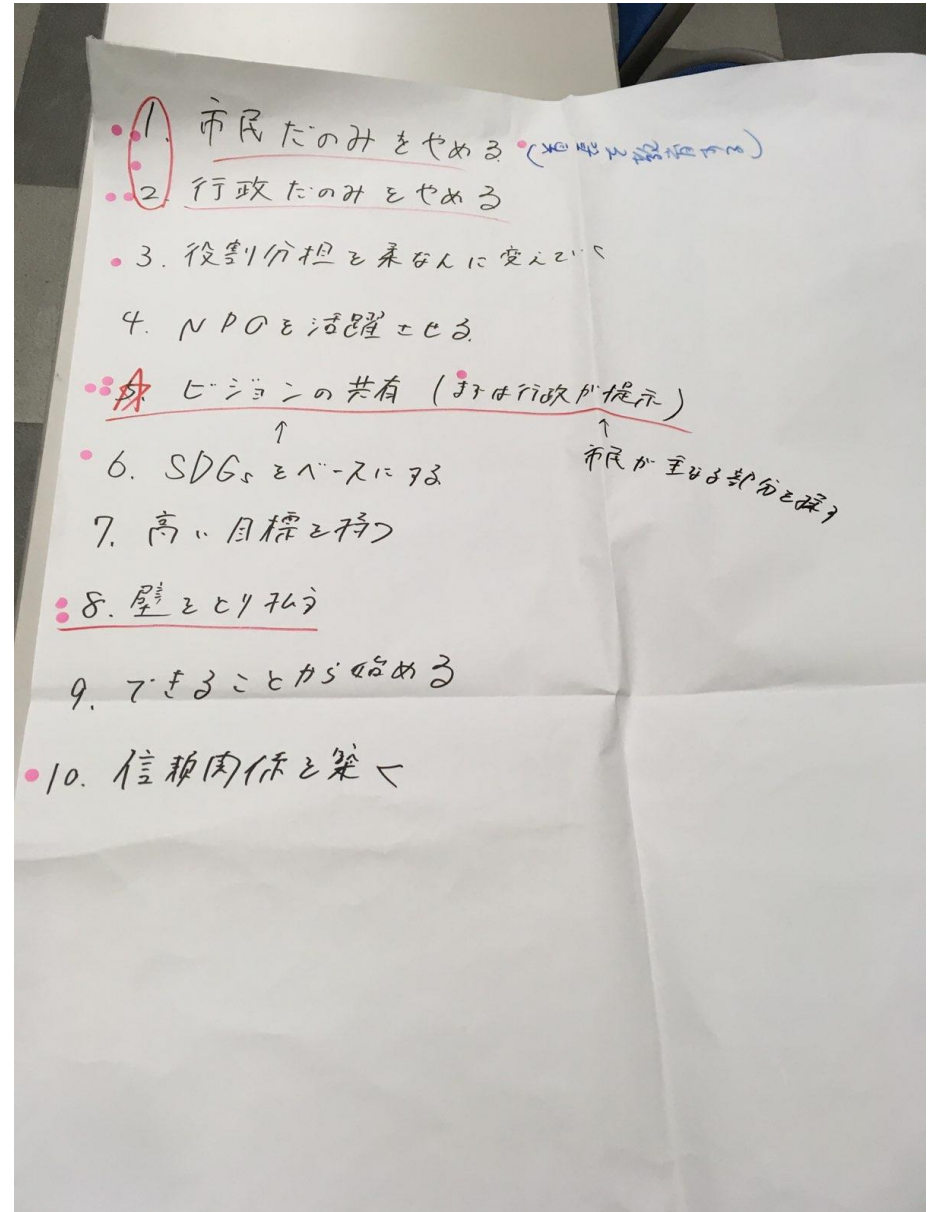 1. 市民だのみをやめる
2. 行政だのみをやめる
3. 役割分担を柔なんに変えていく
4. NPOを活躍させる
5. ビジョンの共有 (まずは行政が提示)
↑ ↑
市民が主なる部分を探す
6. SDGsをベースにする
7. 高い目標を持つ
8. 壁をとり払う
9. できることから始める
10. 信頼関係を築く